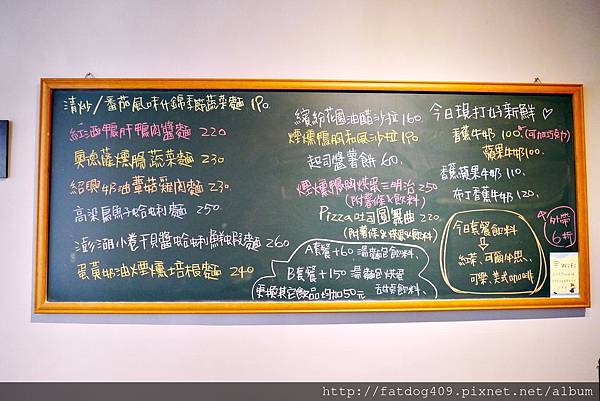 清炒/番茄風味什錦季節蔬菜麵 190.
紅酒鴨肝鴨肉醬麵 220
奧德薩燻腸蔬菜麵 230
紹興奶油蕈菇雞肉麵 230.
高梁扁魚子蛤蜊麵 250.
澎湖小卷干貝醬蛤蜊鮮蝦麵 260
蛋黃奶油煙燻培根麵 240
繽紛花園油醋沙拉 160.
煙燻鴨胸和風沙拉 190
起司醬薯餅 60.
煙燻鴨胸炊蛋三明治 250
(附薯條&飲料)
Pizza吐司圓舞曲 220.
(附薯條&炊蛋&飲料)
A套餐+60 湯麵包飲料.
B套餐+150 湯麵包炊蛋
甜点飲料.
更換其它飲品均加50元
今日現打好新鮮♡
香蕉牛奶 100 *(可加巧克力)
蘋果牛奶100.
香蕉蘋果牛奶 110.
布丁香蕉牛奶 120.
今日套餐飲料
⇩
紅茶、可爾必思、
可樂、美式咖啡
外帶
6折
WiFi
http://fatdog409.pixnet.net/album